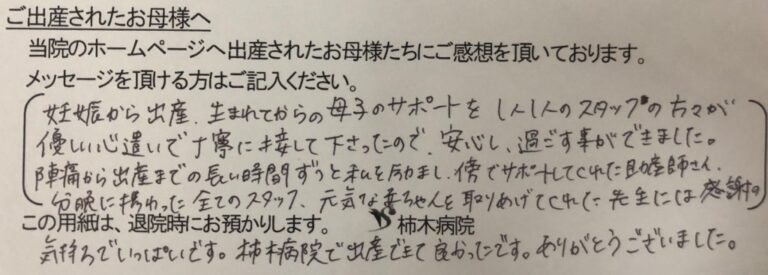 ご出産されたお母様へ
当院のホームページへ出産されたお母様たちにご感想を頂いております。
メッセージを頂ける方はご記入ください。
妊娠から出産、生まれてからの母子のサポートを1人1人のスタッフの方々が
優しい心遣いで丁寧に接して下さったので、安心し、過ごす事ができました。
陣痛から出産までの長い時間ずっと私を励まし、傍でサポートしてくれた助産師さん、
分娩に携わった全てのスタッフ、元気な赤ちゃんを取りあげてくれた先生には感謝の
この用紙は、退院時にお預かりします。 柿木病院
気持ちでいっぱいです。柿木病院で出産できて良かったです。ありがとうございました。